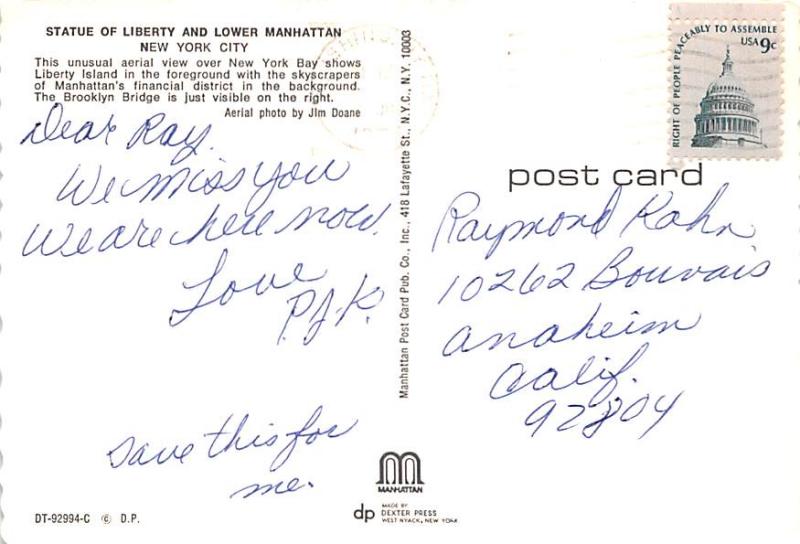 STATUE OF LIBERTY AND LOWER MANHATTAN
NEW YORK CITY
This unusual aerial view over New York Bay shows
Liberty Island in the foreground with the skyscrapers
of Manhattan's financial district in the background.
The Brooklyn Bridge is just visible on the right.
Aerial photo by Jim Doane
Dear Ray,
We miss you
We are here now.
Love
P.J.K.
Save this for
me.
DT-92994-C © D.P.
Manhattan Post Card Pub. Co., Inc., 418 Lafayette St., N.Y.C., N.Y. 10003
MANHATTAN
dp MADE BY
DEXTER PRESS
WEST NYACK, NEW YORK
RIGHT OF PEOPLE PEACEABLY TO ASSEMBLE
USA 9c
post card
Raymond Kahn
10262 Bouvais
Anaheim
Calif.
92804